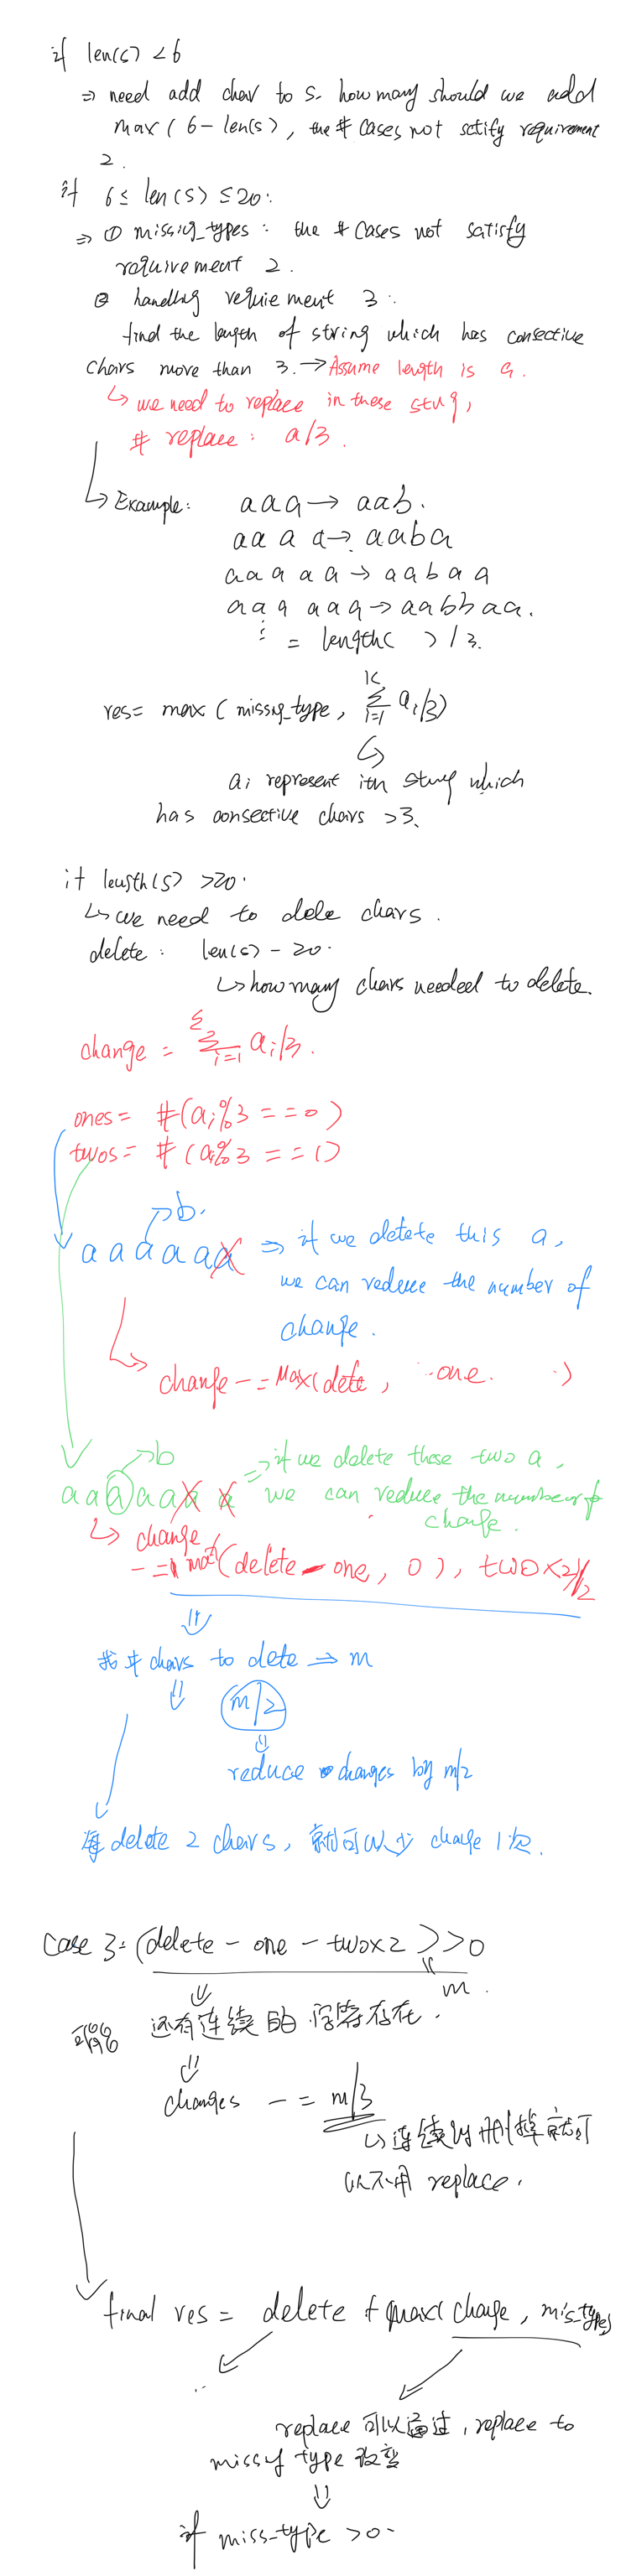 if len(s) < 6
⇒ need add char to s. how many should we add
max ( 6 - len(s) , the # cases not satify requirement
2.
if 6 ≤ len(s) ≤ 20:
⇒ ① missig_types : the # cases not satisfy
requirement 2.
② handling requiement 3:
find the length of string which has consective
chars more than 3. → Assume length is a.
↳ we need to replace in these strng,
# replace: a/3.
↳ Example: a a a → a a b.
a a a a → a a b a
a a a a a → a a b a a
a a a a a a → a a b b a a.
⋮ = length( )/3.
res = max ( missng_type, Σ ai/3)
K
i=1
↳
ai represent ith strng which
has consective chars >3.
if length(s) >20.
↳ we need to dele chars.
delete: len(s) - 20.
↳ how many chars needed to delete.
change = Σ ai/3.
i=1
ones = #(ai%3 == 0)
twos = #(ai%3 == 1)
→ b.
a a a a a a ⇒ if we detete this a,
we can reduce the number of
change.
↳ change -= Max(delte, one. )
→ b
a a a a a a a ⇒ if we delete these two a,
we can reduce the number of
change.
↳ change
-= (delete - one, 0), two×2)/2
⇓
# chars to dete ⇒ m
⇓ m/2
⇓
reduce changes by m/2
每 delete 2 chars, 就可以少 change 1次.
Case 3: (delete - one - two×2) > 0
m.
⇓
可能 还有连续的 字符存在.
⇓
changes -= m/3
↳ 连续的删掉就可
以不用 replace.
final res = delete + max( change, mis_types)
replace 可以通过, replace to
missng type 改变
⇓
if miss_type >0.